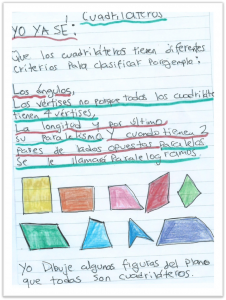 ! Cuadrilateros
YO YA SE:
Que los cuadriláteros tienen diferentes
criterios Para clasificar Porejemplo:
Los ángulos,
Los vértises no porque todos los cuadrilate
tienen 4 vértises,
La longitud y por último
su paralelismo y cuando tienen 2
pares de lados opuestos paralelos
se le llaman Paralelogramos.
Yo Dibuje algunas figuras del plano
que todas son cuadriláteros.